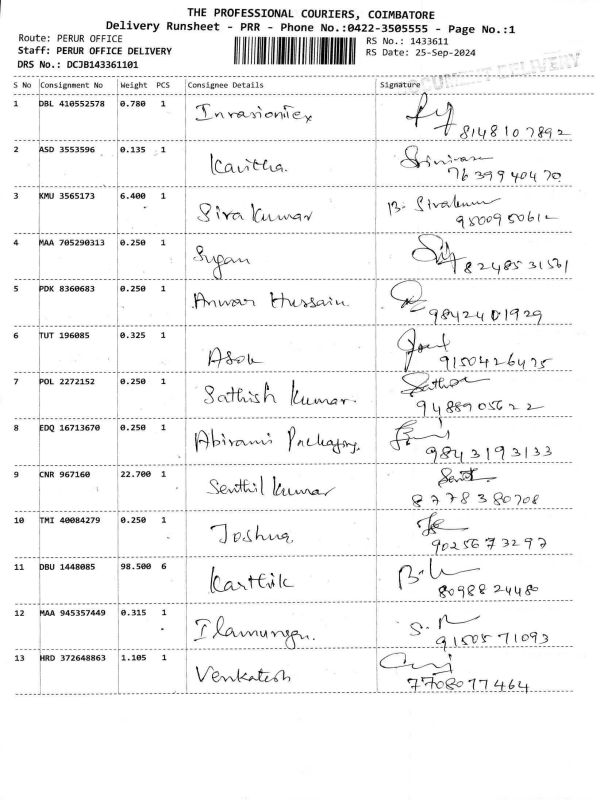 THE PROFESSIONAL COURIERS, COIMBATORE
Delivery Runsheet - PRR - Phone No.:0422-3505555 - Page No.:1
Route: PERUR OFFICE
RS No.: 1433611
Staff: PERUR OFFICE DELIVERY
RS Date: 25-Sep-2024
DRS No.: DCJB143361101
DOCUMENT DELIVERY
S No Consignment No Weight PCS Consignee Details Signature
1 DBL 410552578 0.780 1 Invasiontex
8148107892
2 ASD 3553596 0.135 1 Kavitha. Srinivasan
7639940470
3 KMU 3565173 6.400 1 Siva Kumar B. Sivakumar
9500950612
4 MAA 705290313 0.250 1 Sugan
8248531561
5 PDK 8360683 0.250 1 Anwar Hussain.
9842401929
6 TUT 196085 0.325 1 Asok
9150426475
7 POL 2272152 0.250 1 Sathish Kumar.
9488905622
8 EDQ 16713670 0.250 1 Abirami Packaging.
9843193133
9 CNR 967160 22.700 1 Senthil Kumar
8778380708
10 TMI 40084279 0.250 1 Joshua
9025673297
11 DBU 1448085 98.500 6 Karthik
8098824480
12 MAA 945357449 0.315 1 Ilamurugu.
9150571093
13 HRD 372648863 1.105 1 Venkatesh
7708077464